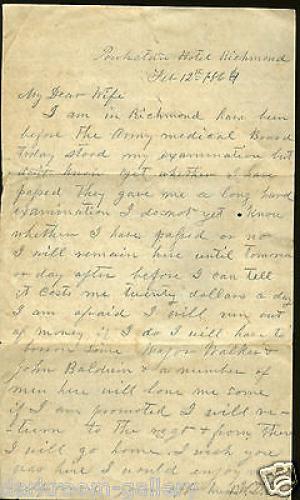 Powhatan Hotel Richmond
Feb 12th 1864
My Dear Wife
I am in Richmond have been
before the Army medical Board
today stood my examination but
dont know yet whether I have
passed they gave me a long hard
examination I do not yet know
whether I have passed or no
I will remain here until tomorrow
or day after before I can tell
it costs me twenty dollars a day
I am afraid I will run out
of money if I do I will have to
borrow some Major Walker &
John Baldwin & a number of
men here will lone me some
if I am promoted I will re-
turn to the regt & from there
I will go home I wish you
was here I would enjoy
darkroom-gallery